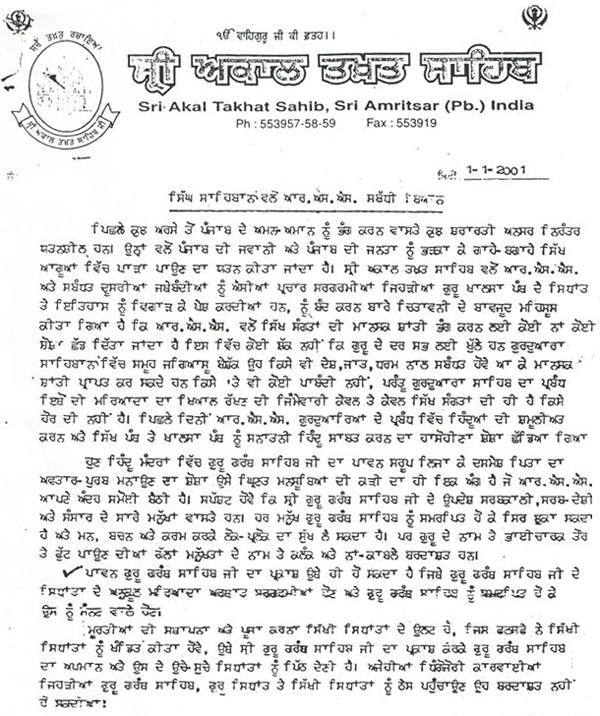 ੴ ਵਾਹਿਗੁਰੂ ਜੀ ਕੀ ਫ਼ਤਹ॥
ਸਚੇ ਤਖ਼ਤੁ ਰਚਾਇਆ
ਸ੍ਰੀ ਅਕਾਲ ਤਖ਼ਤ ਸਾਹਿਬ ਜੀ
ਸ੍ਰੀ ਅਕਾਲ ਤਖ਼ਤ ਸਾਹਿਬ
Sri Akal Takhat Sahib, Sri Amritsar (Pb.) India
Ph : 553957-58-59 Fax : 553919
ਨੰ:
ਮਿਤੀ 1-1-2001
ਸਿੰਘ ਸਾਹਿਬਾਨ ਵਲੋਂ ਆਰ.ਐਸ.ਐਸ. ਸਬੰਧੀ ਬਿਆਨ
ਪਿਛਲੇ ਕੁਝ ਅਰਸੇ ਤੋਂ ਪੰਜਾਬ ਦੇ ਅਮਨ-ਅਮਾਨ ਨੂੰ ਭੰਗ ਕਰਨ ਵਾਸਤੇ ਕੁਝ ਸ਼ਰਾਰਤੀ ਅਨਸਰ ਨਿਰੰਤਰ
ਯਤਨਸ਼ੀਲ ਹਨ। ਉਨ੍ਹਾਂ ਵਲੋਂ ਪੰਜਾਬ ਦੀ ਜਵਾਨੀ ਅਤੇ ਪੰਜਾਬ ਦੀ ਜਨਤਾ ਨੂੰ ਭੜਕਾ ਕੇ ਗਾਹੇ-ਬਗਾਹੇ ਸਿੱਖ
ਆਗੂਆਂ ਵਿੱਚ ਪਾੜਾ ਪਾਉਣ ਦਾ ਯਤਨ ਕੀਤਾ ਜਾਂਦਾ ਹੈ। ਸ੍ਰੀ ਅਕਾਲ ਤਖਤ ਸਾਹਿਬ ਵਲੋਂ ਆਰ.ਐਸ.ਐਸ.
ਅਤੇ ਸਬੰਧਤ ਦੂਸਰੀਆਂ ਜਥੇਬੰਦੀਆਂ ਨੂੰ ਐਸੀਆਂ ਪ੍ਰਚਾਰ ਸਰਗਰਮੀਆਂ ਜਿਹੜੀਆਂ ਗੁਰੂ ਖਾਲਸਾ ਪੰਥ ਦੇ ਸਿਧਾਂਤ
ਤੇ ਇਤਿਹਾਸ ਨੂੰ ਵਿਗਾੜ ਕੇ ਪੇਸ਼ ਕਰਦੀਆਂ ਹਨ, ਨੂੰ ਬੰਦ ਕਰਨ ਬਾਰੇ ਚਿਤਾਵਨੀ ਦੇ ਬਾਵਜੂਦ ਮਹਿਸੂਸ
ਕੀਤਾ ਗਿਆ ਹੈ ਕਿ ਆਰ.ਐਸ.ਐਸ. ਵਲੋਂ ਸਿੱਖ ਸੰਗਤਾਂ ਦੀ ਮਾਨਸਕ ਸ਼ਾਂਤੀ ਭੰਗ ਕਰਨ ਲਈ ਕੋਈ ਨਾਂ ਕੋਈ
ਸ਼ੋਸ਼ਾ ਛੱਡ ਦਿੱਤਾ ਜਾਂਦਾ ਹੈ ਇਸ ਵਿੱਚ ਕੋਈ ਸ਼ੱਕ ਨਹੀਂ ਕਿ ਗੁਰੂ ਦੇ ਦਰ ਸਭ ਲਈ ਖੁੱਲੇ ਹਨ ਗੁਰਦੁਆਰਾ
ਸਾਹਿਬਾਨ ਵਿੱਚ ਸਮੂਹ ਜਗਿਆਸੂ ਬੇਸ਼ੱਕ ਉਹ ਕਿਸੇ ਵੀ ਦੇਸ਼,ਜਾਤ,ਧਰਮ ਨਾਲ ਸਬਧਤ ਹੋਵੇ ਆ ਕੇ ਮਾਨਸਕ
ਸ਼ਾਂਤੀ ਪ੍ਰਾਪਤ ਕਰ ਸਕਦੇ ਹਨ ਕਿਸੇ 'ਤੇ ਵੀ ਕੋਈ ਪਾਬੰਦੀ ਨਹੀਂ, ਪਰੰਤੂ ਗੁਰਦੁਆਰਾ ਸਾਹਿਬ ਦਾ ਪ੍ਰਬੰਧ
ਇਥੋਂ ਦੀ ਮਰਿਆਦਾ ਦਾ ਖਿਆਲ ਰੱਖਣ ਦੀ ਜਿੰਮੇਵਾਰੀ ਕੇਵਲ ਤੇ ਕੇਵਲ ਸਿੱਖ ਸੰਗਤਾਂ ਦੀ ਹੀ ਹੈ ਕਿਸੇ
ਹੋਰ ਦੀ ਨਹੀਂ ਹੈ। ਪਿਛਲੇ ਦਿਨੀਂ ਆਰ.ਐਸ.ਐਸ. ਗੁਰਦੁਆਰਿਆਂ ਦੇ ਪ੍ਰਬੰਧ ਵਿੱਚ ਹਿੰਦੂਆਂ ਦੀ ਸ਼ਮੂਲੀਅਤ
ਕਰਨ ਅਤੇ ਸਿੱਖ ਪੰਥ ਤੇ ਖਾਲਸਾ ਪੰਥ ਨੂੰ ਸਨਾਤਨੀ ਹਿੰਦੂ ਸਾਬਤ ਕਰਨ ਦਾ ਹਾਸੋਹੀਣਾ ਸ਼ੋਸ਼ਾ ਛੱਡਿਆ ਗਿਆ
ਹੁਣ ਹਿੰਦੂ ਮੰਦਰਾਂ ਵਿੱਚ ਗੁਰੂ ਗਰੰਥ ਸਾਹਿਬ ਜੀ ਦਾ ਪਾਵਨ ਸਰੂਪ ਲਿਜਾ ਕੇ ਦਸਮੇਸ਼ ਪਿਤਾ ਦਾ
ਅਵਤਾਰ-ਪੁਰਬ ਮਨਾਉਣ ਦਾ ਸ਼ੋਸ਼ਾ ਉਸੇ ਘ੍ਰਿਣਤ ਮਨਸੂਬਿਆਂ ਦੀ ਕੜੀ ਦਾ ਹੀ ਇਕ ਅੰਗ ਹੈ ਜੋ ਆਰ.ਐਸ.ਐਸ.
ਆਪਣੇ ਅੰਦਰ ਸਮੋਈ ਬੈਠੀ ਹੈ। ਸਪੱਸ਼ਟ ਹੋਵੇ ਕਿ ਸ੍ਰੀ ਗੁਰੂ ਗਰੰਥ ਸਾਹਿਬ ਜੀ ਦੇ ਉਪਦੇਸ਼ ਸਰਬਕਾਲੀ,ਸਰਬ-ਦੇਸ਼ੀ
ਅਤੇ ਸੰਸਾਰ ਦੇ ਸਾਰੇ ਮਨੁੱਖਾਂ ਵਾਸਤੇ ਹਨ। ਹਰ ਮਨੁੱਖ ਗੁਰੂ ਗਰੰਥ ਸਾਹਿਬ ਨੂੰ ਸਮਰਪਿਤ ਹੋ ਕੇ ਸਿਰ ਝੁਕਾ ਸਕਦਾ
ਹੈ ਅਤੇ ਮਨ, ਬਚਨ ਅਤੇ ਕਰਮ ਕਰਕੇ ਲੋਕ-ਪ੍ਰਲੋਕ ਦਾ ਸੁੱਖ ਲੈ ਸਕਦਾ ਹੈ। ਪਰ ਗੁਰੂ ਦੇ ਨਾਮ ਤੇ ਭਾਈਚਾਰਕ ਤੌਰ
ਤੇ ਫੁੱਟ ਪਾਉਣ ਦੀਆਂ ਚੱਲਾਂ ਮਨੁੱਖਤਾ ਦੇ ਨਾਮ ਤੇ ਕਲੰਕ ਅਤੇ ਨਾਂ-ਕਾਬਲੇ ਬਰਦਾਸ਼ਤ ਹਨ।
ਪਾਵਨ ਗੁਰੂ ਗਰੰਥ ਸਾਹਿਬ ਜੀ ਦਾ ਪ੍ਰਕਾਸ਼ ਉਥੇ ਹੀ ਹੋ ਸਕਦਾ ਹੈ ਜਿਥੇ ਗੁਰੂ ਗਰੰਥ ਸਾਹਿਬ ਜੀ ਦੇ
ਸਿਧਾਂਤਾ ਦੇ ਅਨੁਕੂਲ ਮਰਿਆਦਾ ਅਰਥਾਤ ਸਰਗਰਮੀਆਂ ਹੋਣ ਅਤੇ ਗੁਰੂ ਗਰੰਥ ਸਾਹਿਬ ਨੂੰ ਸਮਰਪਿਤ ਹੋ ਕੇ
ਉਸ ਨੂੰ ਮੰਨਣ ਵਾਲੇ ਹੋਣ।
ਮੂਰਤੀਆਂ ਦੀ ਸਥਾਪਨਾ ਅਤੇ ਪੂਜਾ ਕਰਨਾ ਸਿੱਖੀ ਸਿਧਾਂਤਾਂ ਦੇ ਉਲਟ ਹੈ, ਜਿਸ ਫਲਸਫੇ ਨੇ ਸਿੱਖੀ
ਸਿਧਾਂਤਾਂ ਨੂੰ ਖੰਡਿਤ ਕੀਤਾ ਹੋਵੇ, ਉਥੇ ਸ੍ਰੀ ਗੁਰੂ ਗਰੰਥ ਸਾਹਿਬ ਜੀ ਦਾ ਪ੍ਰਕਾਸ਼ ਕਰਕੇ ਗੁਰੂ ਗਰੰਥ ਸਾਹਿਬ
ਦਾ ਅਪਮਾਨ ਅਤੇ ਉਸ ਦੇ ਉਚੇ-ਸੁਚੇ ਸਿਧਾਂਤਾਂ ਨੂੰ ਪਿੱਠ ਦੇਣੀ ਹੈ। ਅਜੇਹੀਆਂ ਧਿੰਗੋਜ਼ੋਰੀ ਕਾਰਵਾਈਆਂ
ਜਿਹੜੀਆਂ ਗੁਰੂ ਗਰੰਥ ਸਾਹਿਬ, ਗੁਰੂ ਸਿਧਾਂਤ ਤੇ ਸਿੱਖੀ ਸਿਧਾਂਤਾਂ ਨੂੰ ਠੇਸ ਪਹੁੰਚਾਉਣ ਉਹ ਬਰਦਾਸ਼ਤ ਨਹੀਂ
ਹੋ ਸਕਦੀਆਂ।